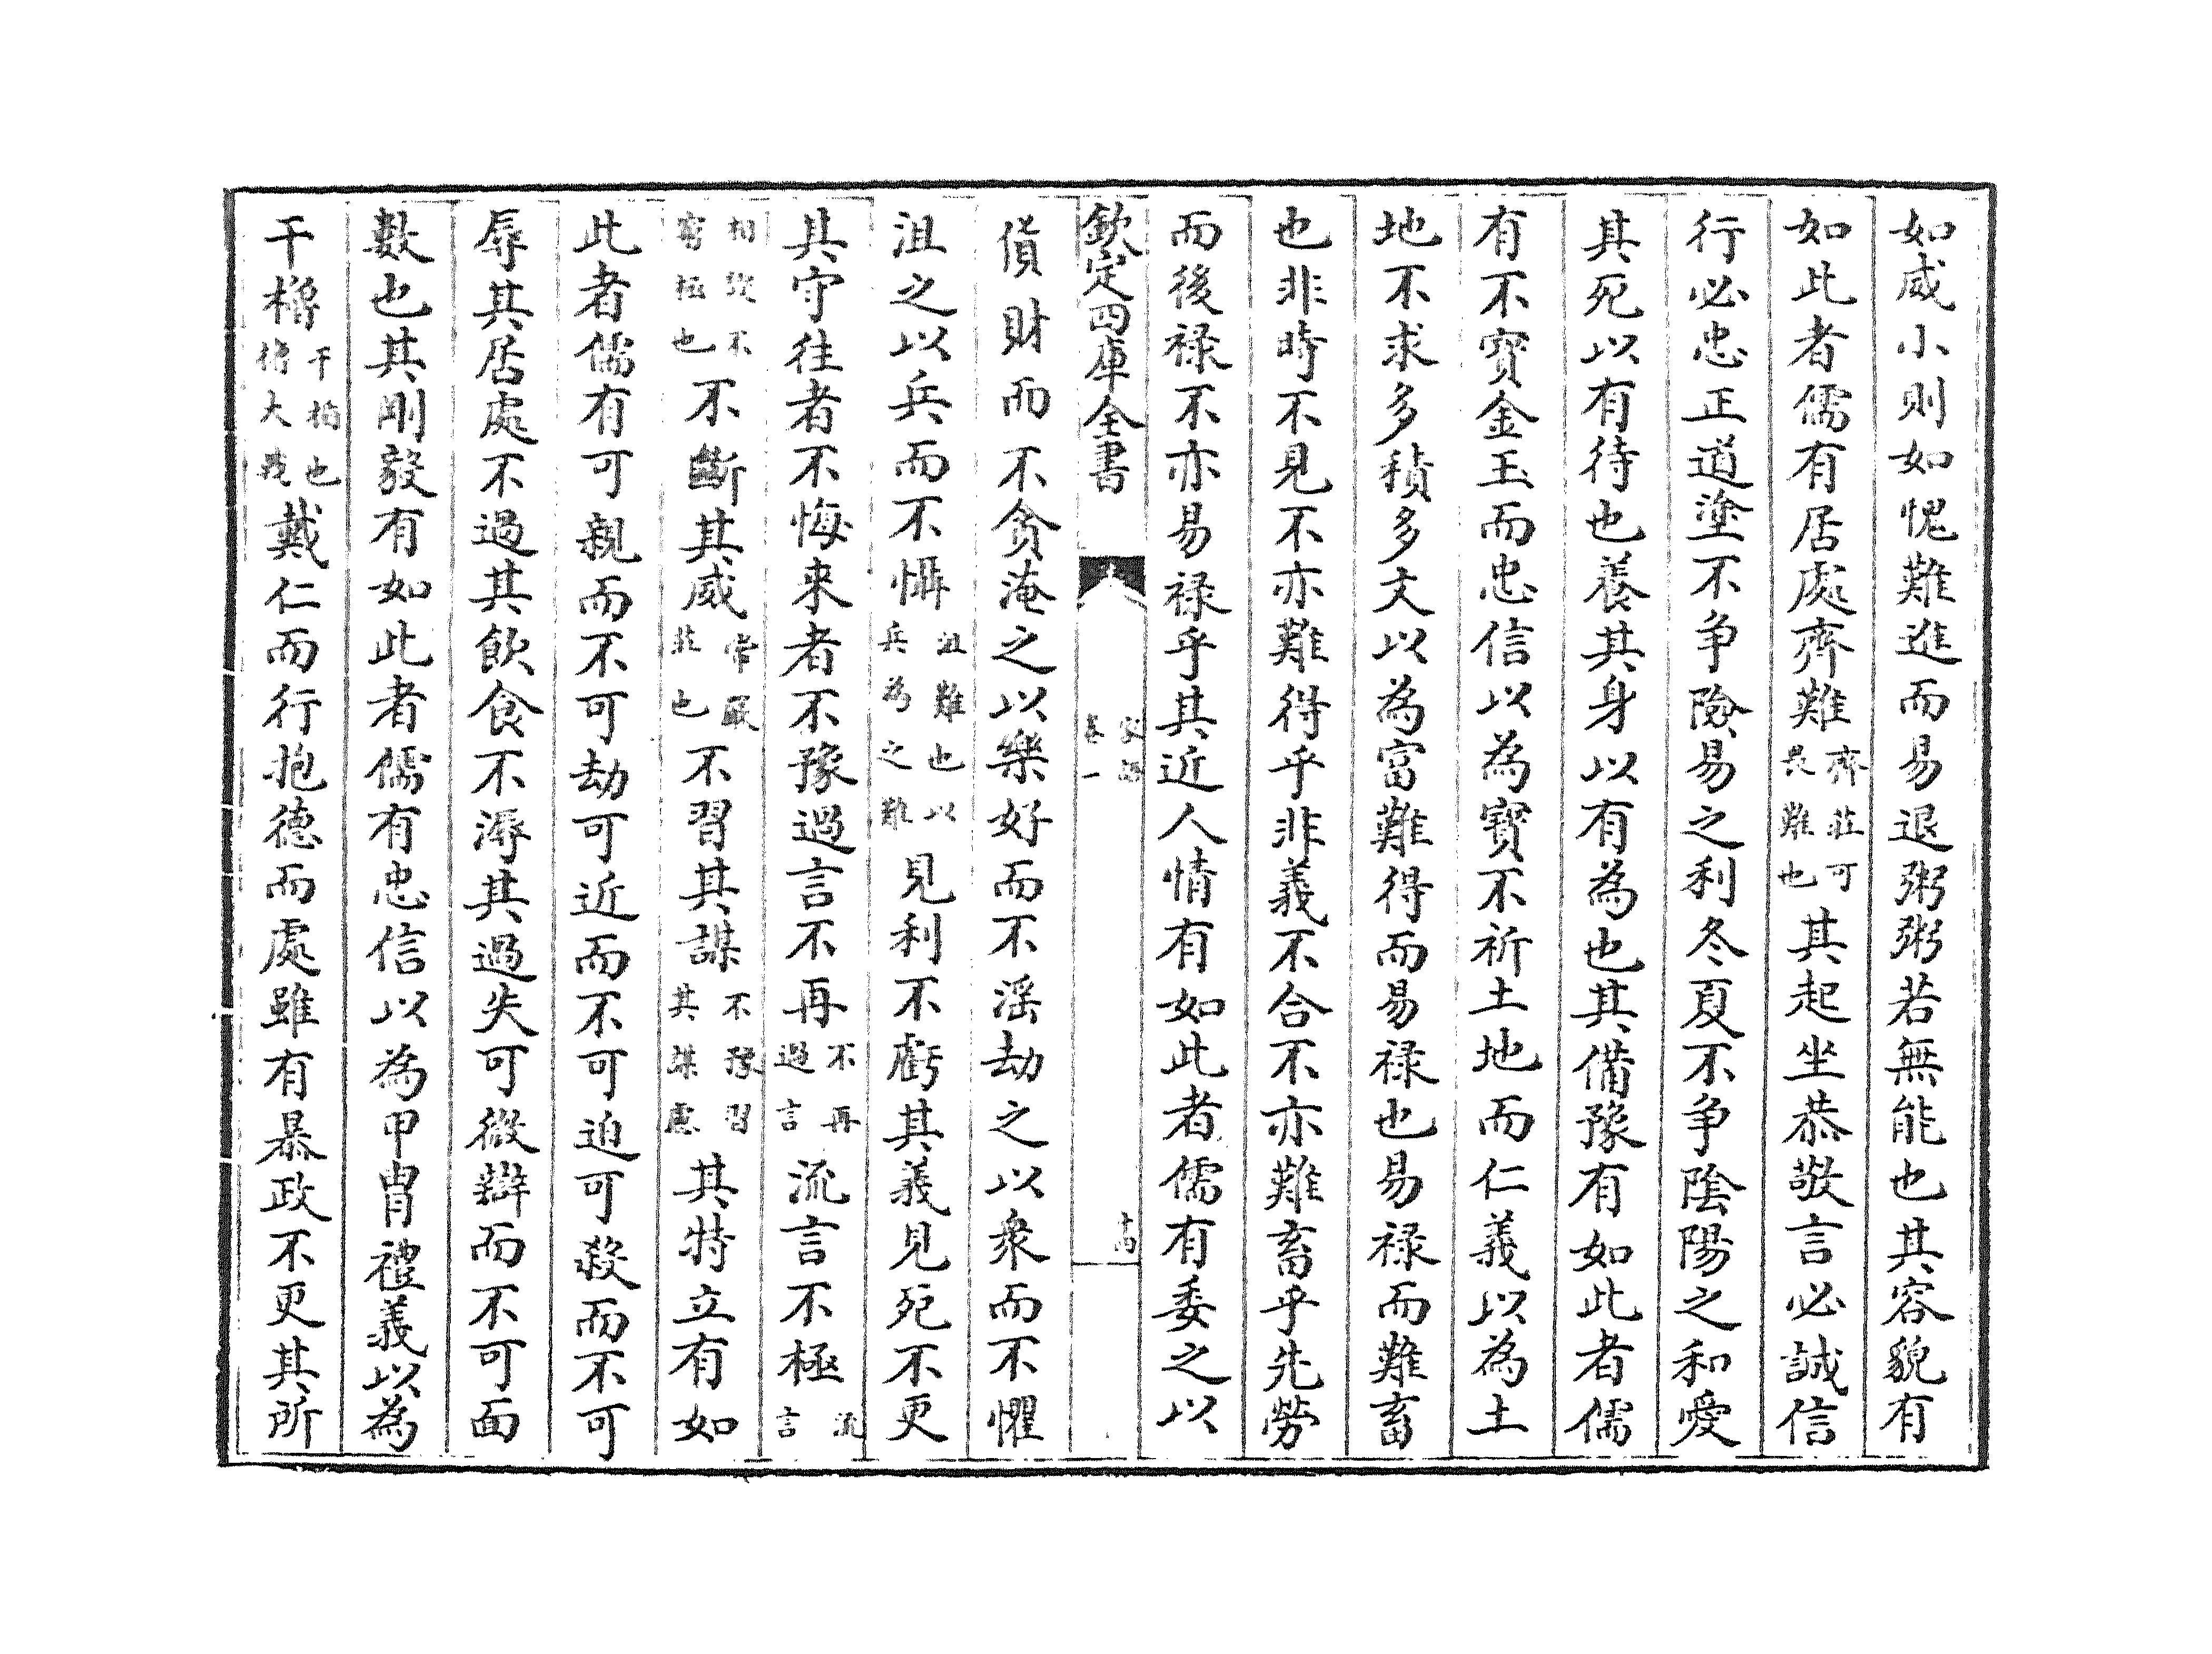 如威小則如愧難進而易退粥粥若無能也其容貌有
如此者儒有居處齊難齊莊可畏難也其起坐恭敬言必誠信
行必忠正道塗不争險易之利冬夏不争陰陽之和愛
其死以有待也養其身以有為也其備豫有如此者儒
有不寳金玉而忠信以為寳不祈土地而仁義以為土
地不求多積多文以為富難得而易禄也易禄而難畜
也非時不見不亦難得乎非義不合不亦難畜乎先勞
而後禄不亦易禄乎其近人情有如此者儒有委之以
欽定四庫全書
家語
卷一
十四
貨財而不貪淹之以樂好而不淫劫之以衆而不懼
沮之以兵而不懾沮難也以兵為之難見利不虧其義見死不更
其守往者不悔来者不豫過言不再不再過言流言不極流言
相毁不窮極也不斷其威常嚴莊也不習其謀不豫習其謀慮其特立有如
此者儒有可親而不可劫可近而不可迫可殺而不可
辱其居處不過其飲食不溽其過失可微辯而不可面
數也其剛毅有如此者儒有忠信以為甲胄禮義以為
干櫓干楯也櫓大㦸戴仁而行抱德而處雖有暴政不更其所